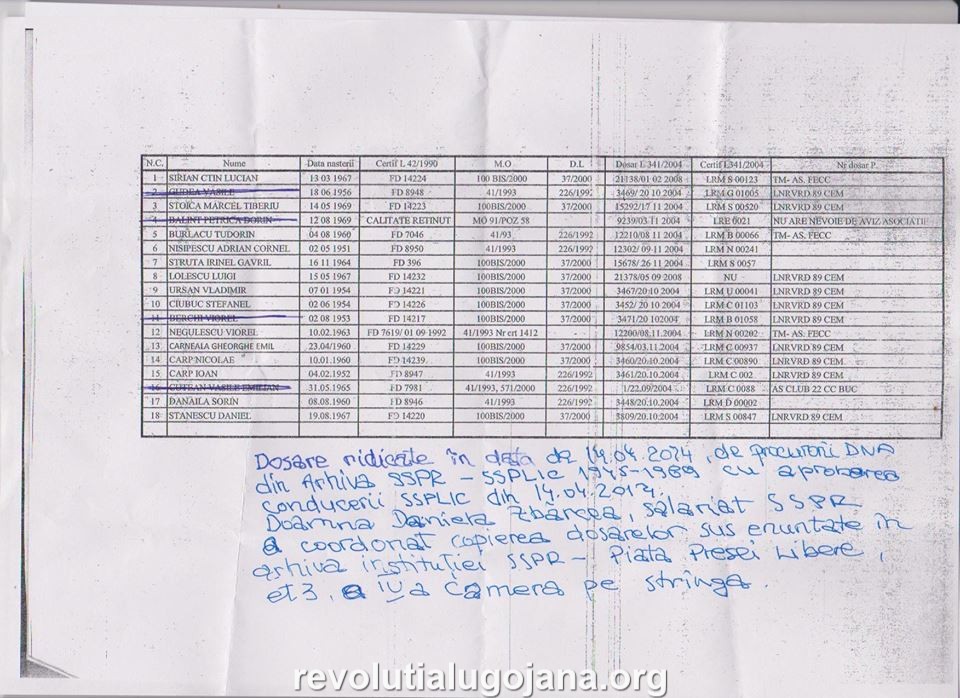 N.C. Nume Data nasterii Certif L 42/1990 M.O D.L Dosar L 341/2004 Certif L341/2004 Nr dosar P.
1 SIRIAN CTIN LUCIAN 13 03 1967 FD 14224 100 BIS/2000 37/2000 21138/01 02 2008 LRM S 00123 TM- AS. FECC
2 GUDEA VASILE 18 06 1956 FD 8948 41/1993 226/1992 3469/ 20 10 2004 LRM G 01005 LNRVRD 89 CEM
3 STOICA MARCEL TIBERIU 14 05 1969 FD 14223 100BIS/2000 37/2000 15292/17 11 2004 LRM S 00520 LNRVRD 89 CEM
4 BALINT PETRICA DORIN 12 08 1969 CALITATE RETINUT MO 91/POZ 58 9239/03 11 2004 LRE 0021 NU ARE NEVOIE DE AVIZ ASOCIATIE
5 BURLACU TUDORIN 04 08 1960 FD 7046 41/93 226/1992 12210/08 11 2004 LRM B 00066 TM- AS. FECC
6 NISIPESCU ADRIAN CORNEL 02 05 1951 FD 8950 41/1993 226/1992 12302/ 09 11 2004 LRM N 00241
7 STRUTA IRINEL GAVRIL 16 11 1964 FD 396 100BIS/2000 37/2000 15678/ 26 11 2004 LRM S 0057
8 LOLESCU LUIGI 15 05 1967 FD 14232 100BIS/2000 37/2000 21378/05 09 2008 NU LNRVRD 89 CEM
9 URSAN VLADIMIR 07 01 1954 FD 14221 100BIS/2000 37/2000 3467/20 10 2004 LRM U 00041 LNRVRD 89 CEM
10 CIUBUC STEFANEL 02 06 1954 FD 14226 100BIS/2000 37/2000 3452/ 20 10 2004 LRM C 01103 LNRVRD 89 CEM
11 BERCHI VIOREL 02 08 1953 FD 14217 100BIS/2000 37/2000 3471/20 102004 LRM B 01058 LNRVRD 89 CEM
12 NEGULESCU VIOREL 10.02.1963 FD 7619/ 01 09 1992 41/1993 Nr crt 1412 - 12200/08.11.2004 LRM N 00202 TM- AS. FECC
13 CARNEALA GHEORGHE EMIL 23.04/1960 FD 14229 100BIS/2000 37/2000 9854/03.11.2004 LRM C 00937 LNRVRD 89 CEM
14 CARP NICOLAE 10.01.1960 FD 14239 100BIS/2000 37/2000 3460/20.10.2004 LRM C 00890 LNRVRD 89 CEM
15 CARP IOAN 04.02.1952 FD 8947 41/1993 226/1992 3461/20.10.2004 LRM C 002 LNRVRD 89 CEM
16 CUTEAN VASILE EMILIAN 31.05.1965 FD 7981 41/1993, 571/2000 226/1992 1/22.09/2004 LRM C 0088 AS CLUB 22 CC BUC
17 DANAILA SORIN 08.08.1960 FD 8946 41/1993 226/1992 3448/20.10.2004 LRM D 00002
18 STANESCU DANIEL 19.08.1967 FD 14220 100BIS/2000 37/2000 3809/20.10.2004 LRM S 00847 LNRVRD 89 CEM
Dosare ridicate în data de 14.04.2014, de procurorii DNA
din Arhiva SSPR - SSPLIC 1945-1989 cu aprobarea
conducerii SSPLIC din 14.04.2014.
Doamna Daniela Zbârcea, salariat SSPR
a coordonat copierea dosarelor sus enuntate în
arhiva instituției SSPR - Piata Presei Libere,
et 3, a IV a Camera pe stînga.
revolutialugojana.org